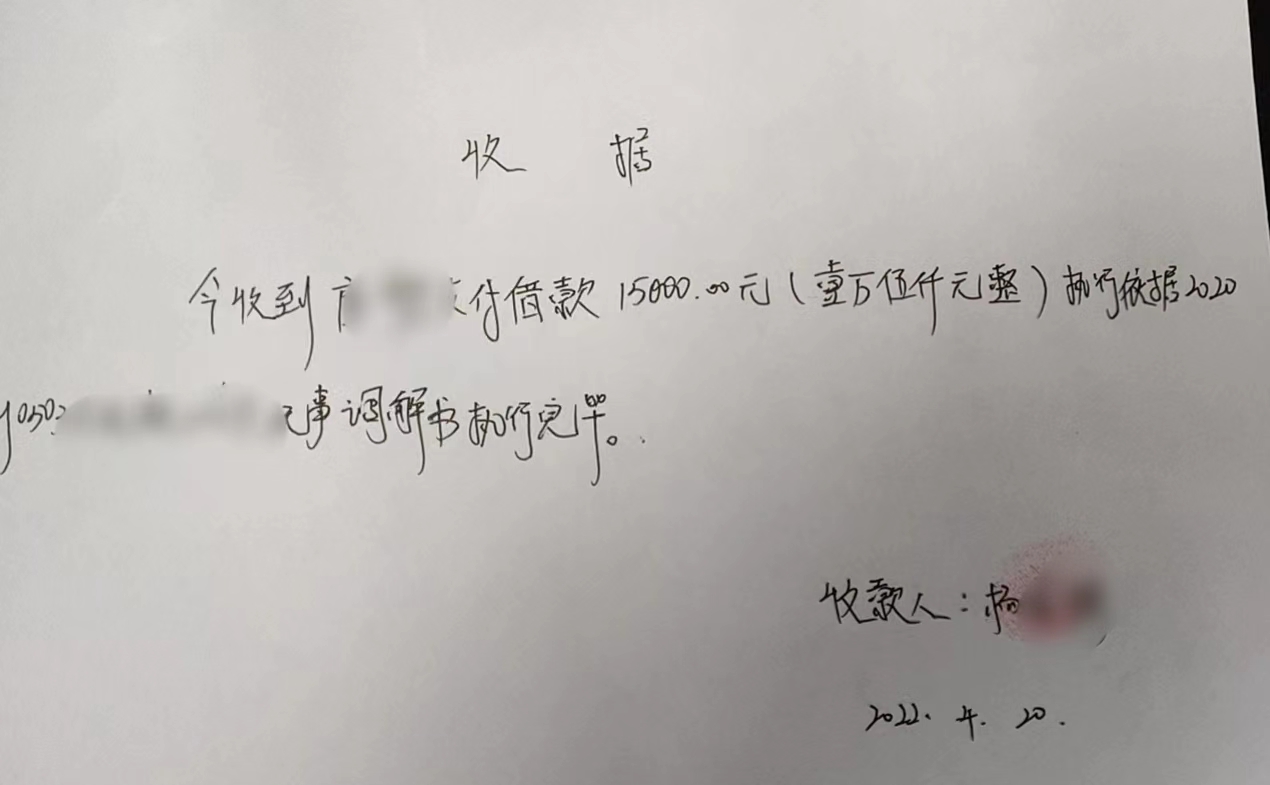 收 据
今收到 付借款 15000.00元（壹万伍仟元整）执行依据2020
事调解书执行完毕。
收款人：杨
2022. 4. 20.